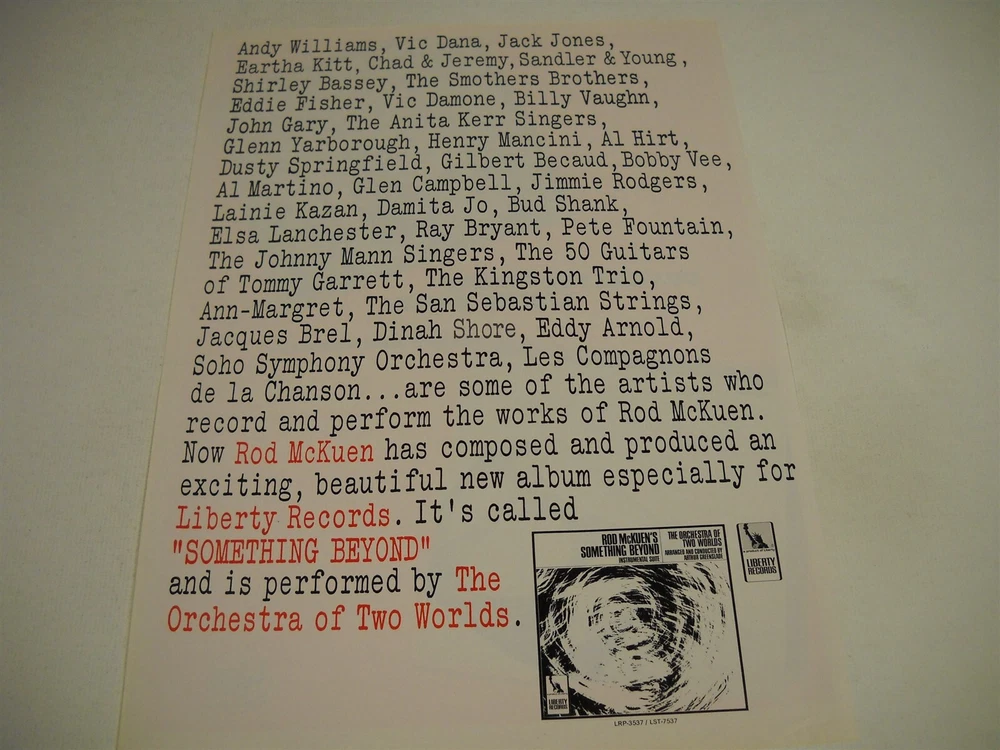 Andy Williams, Vic Dana, Jack Jones,
Eartha Kitt, Chad & Jeremy, Sandler & Young,
Shirley Bassey, The Smothers Brothers,
Eddie Fisher, Vic Damone, Billy Vaughn,
John Gary, The Anita Kerr Singers,
Glenn Yarborough, Henry Mancini, Al Hirt,
Dusty Springfield, Gilbert Becaud, Bobby Vee,
Al Martino, Glen Campbell, Jimmie Rodgers,
Lainie Kazan, Damita Jo, Bud Shank,
Elsa Lanchester, Ray Bryant, Pete Fountain,
The Johnny Mann Singers, The 50 Guitars
of Tommy Garrett, The Kingston Trio,
Ann-Margret, The San Sebastian Strings,
Jacques Brel, Dinah Shore, Eddy Arnold,
Soho Symphony Orchestra, Les Compagnons
de la Chanson...are some of the artists who
record and perform the works of Rod McKuen.
Now Rod McKuen has composed and produced an
exciting, beautiful new album especially for
Liberty Records. It's called
"SOMETHING BEYOND"
and is performed by The
Orchestra of Two Worlds.
ROD McKUEN'S
SOMETHING BEYOND
INSTRUMENTAL SUITE
THE ORCHESTRA OF
TWO WORLDS
ARRANGED AND CONDUCTED BY
ARTHUR GREENSLADE
LIBERTY
RECORDS
LIBERTY
RECORDS
LRP-3537 / LST-7537